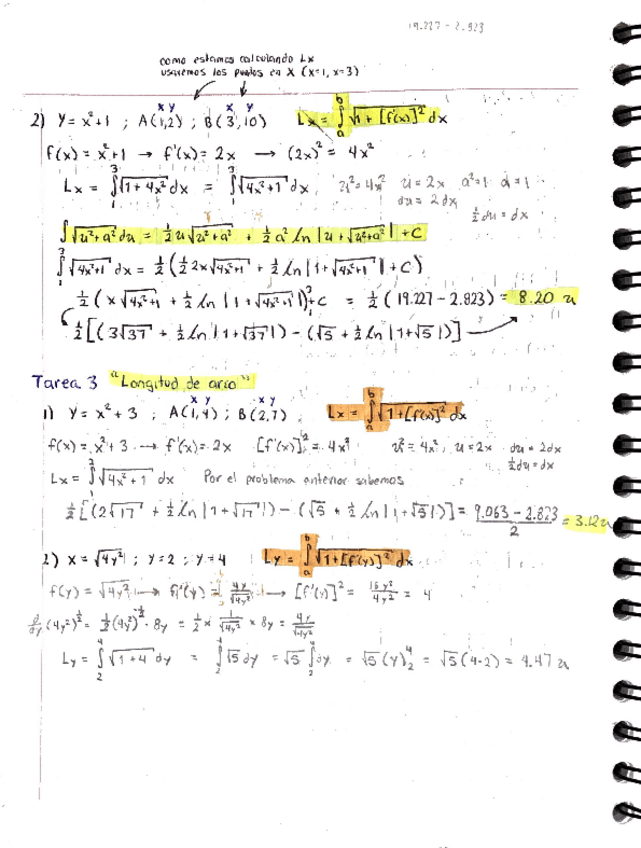 19.227 - 2.823
como estamos calculando Lx
usaremos los puntos en X (x=1, x=3)
x y x y
2) y = x²+1 ; A(1,2) ; B(3,10) Lx = ∫ₐᵇ √1 + [f'(x)]² dx
f(x) = x²+1 → f'(x) = 2x → (2x)² = 4x²
Lx = ∫₁³ √1+4x² dx = ∫₁³ √4x²+1 dx, u² = 4x² u = 2x a²=1 a=1
du = 2dx
½du = dx
∫√u²+a² du = ½u√u²+a² + ½a² ln|u+√u²+a²| + C
∫₁³ √4x²+1 dx = ½(½2x√4x²+1 + ½ ln|1+√4x²+1| + C)
½(x√4x²+1 + ½ ln|1+√4x²+1|)₁³+C = ½(19.227 - 2.823) = 8.20 u
½[(3√37 + ½ ln|1+√37|) - (√5 + ½ ln|1+√5|)]
Tarea 3 "Longitud de arco"
x y x y
1) y = x² + 3 ; A(1,4) ; B(2,7) Lx = ∫ₐᵇ √1+[f'(x)]² dx
f(x) = x²+3 → f'(x) = 2x [f'(x)]² = 4x² u² = 4x², u = 2x du = 2dx
½du = dx
Lx = ∫₁² √4x²+1 dx Por el problema anterior sabemos
½[(2√17 + ½ ln|1+√17|) - (√5 + ½ ln|1+√5|)] = 9.063 - 2.823 / 2 = 3.12u
2) x = √4y² ; y=2 ; y=4 Ly = ∫ₐᵇ √1+[f'(y)]² dx
f(y) = √4y² → f'(y) = 4y/√4y² → [f'(y)]² = 16y²/4y² = 4
∂/∂y (4y²)^½ = ½(4y²)^-½ · 8y = ½ × 1/√4y² × 8y = 4y/√4y²
Ly = ∫₂⁴ √1+4 dy = ∫₂⁴ √5 dy = √5 ∫₂⁴ dy = √5 (y)₂⁴ = √5(4-2) = 4.47 u